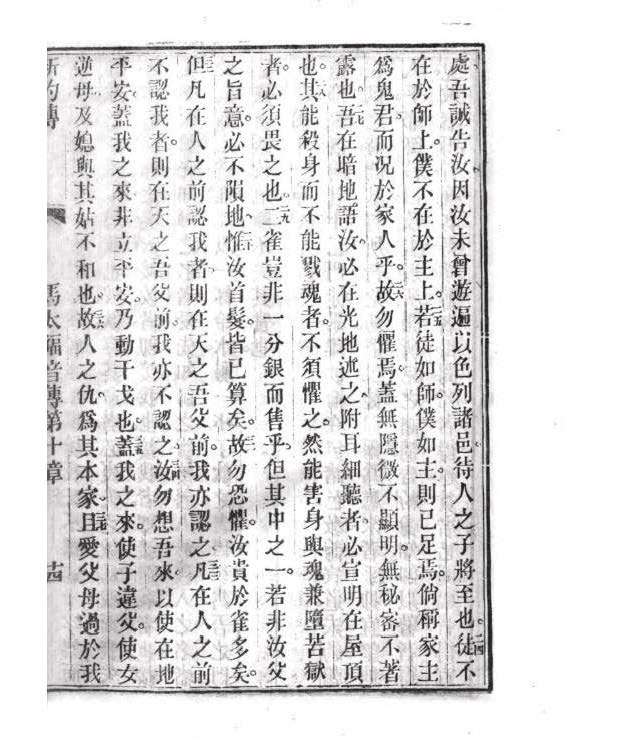 處吾誠告汝因汝未曾遊遍以色列諸邑待人之子將至也。二四徒不
在於師上僕不在於主上。二五若徒如師。僕如主。則已足焉。倘稱家主
爲鬼君。而况於家人乎。二六故勿懼焉。蓋無隱微不顯明。無秘密不著
露也。二七吾在暗地語汝。必在光地述之。附耳細聽者。必宣明在屋頂
也。二八其能殺身而不能戮魂者。不須懼之。然能害身與魂兼墮苦獄
者。必須畏之也。二九二雀豈非一分銀而售乎。但其中之一。若非汝父
之旨意。必不隕地。三十惟汝首髮。皆已算矣。三一故勿恐懼。汝貴於雀多矣。
三二但凡在人之前認我者。則在天之吾父前。我亦認之。三三凡在人之前
不認我者。則在天之吾父前。我亦不認之。三四汝勿想吾來。以使在地
平安。蓋我之來非立平安。乃動干戈也。三五蓋我之來。使子違父。使女
逆母。及媳與其姑不和也。三六故人之仇。爲其本家。三七且愛父母過於我
新約傳 馬太福音傳第十章 十四